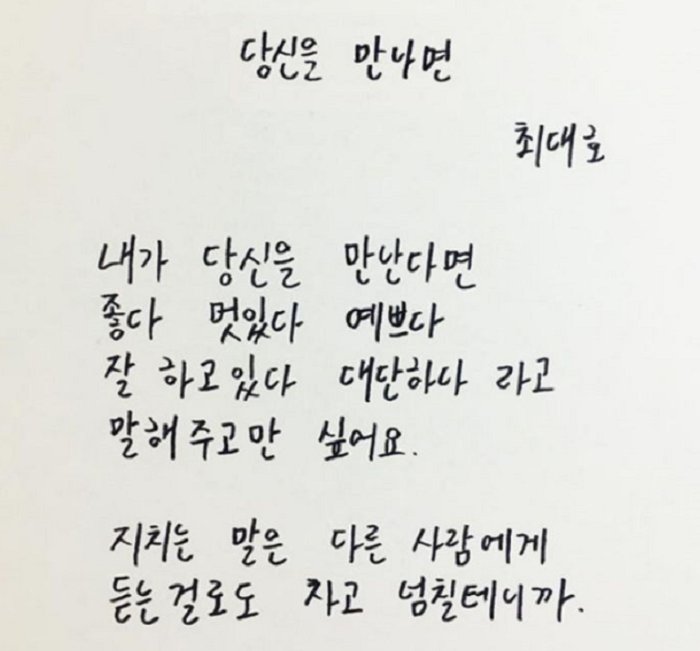 당신을 만나면
최대호
내가 당신을 만난다면
좋다 멋있다 예쁘다
잘 하고있다 대단하다 라고
말해주고만 싶어요.
지치는 말은 다른 사람에게
듣는걸로도 차고 넘칠테니까.